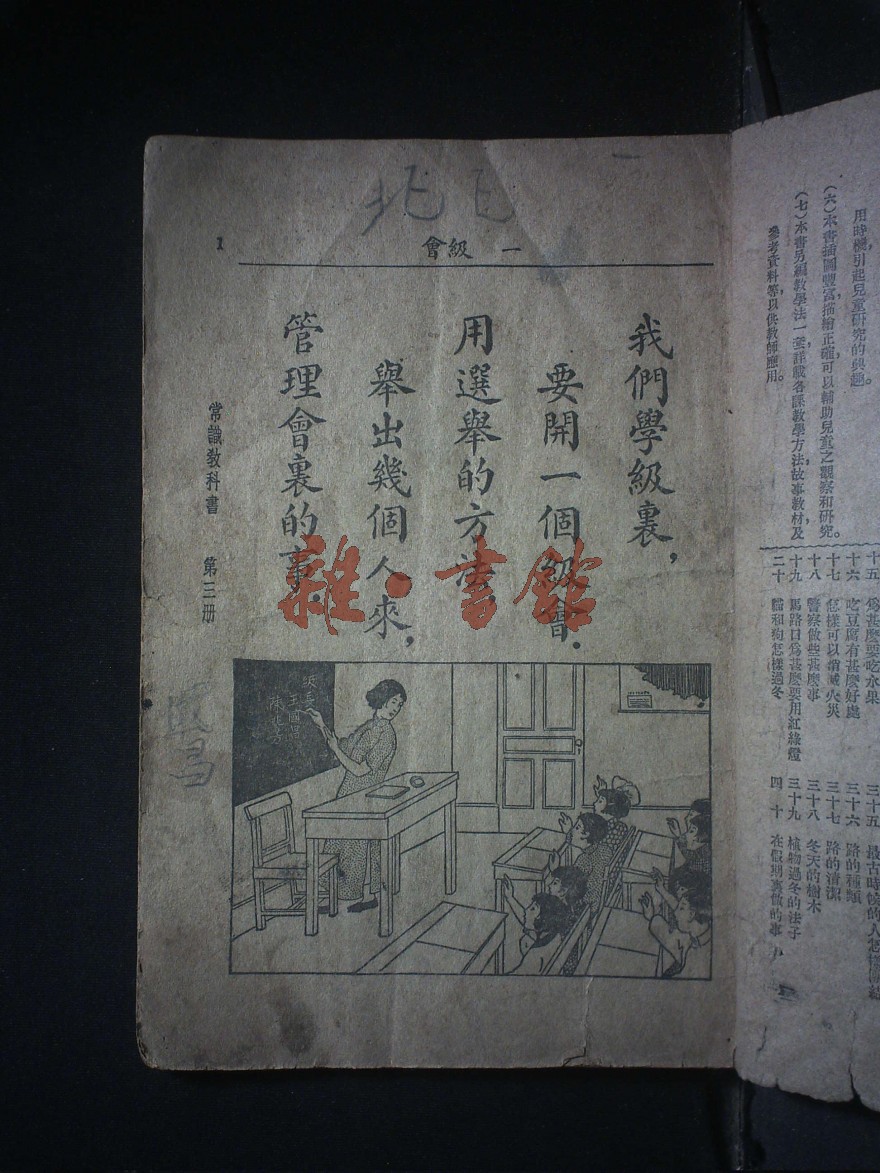 用時機引起兒童研究的興趣
(六)本書插圖豐富,描繪正確,可以輔助兒童之觀察和研究。
(七)本書另編教學法一套,詳載各課教學方法,故事,教材及
參考資料等,以供教師應用。
十五 爲甚麼要吃水果
十六 吃豆腐有甚麼好處
十七 怎樣可以消滅火災
十八 警察做些甚麼事
十九 馬路口爲甚麼要用紅綠燈
二十 貓和狗怎樣過冬
三十五 最古時候的人怎樣
三十六 路的種類
三十七 路的清潔
三十八 冬天的樹木
三十九 植物過冬的法子
四十 在假期裏做的事
一 級會
1
我們學級裏,
要開一個級會.
用選舉的方法,
舉出幾個人來,
管理會裏的事.
常識教科書 第三册
王國昌
雜·書館